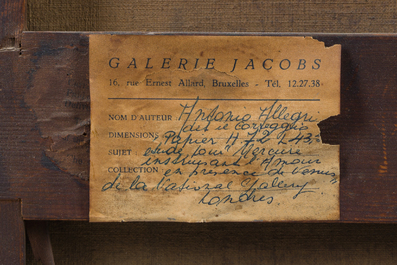 GALERIE JACOBS
16, rue Ernest Allard, Bruxelles - Tél. 12.27.38
NOM D'AUTEUR Antonio Allegri
dit le Correggio
DIMENSIONS Papier H 72 L 43
SUJET étude pour Mercure
instruisant l'Amour
COLLECTION en présence de Venus
de la National Gallery
Londres